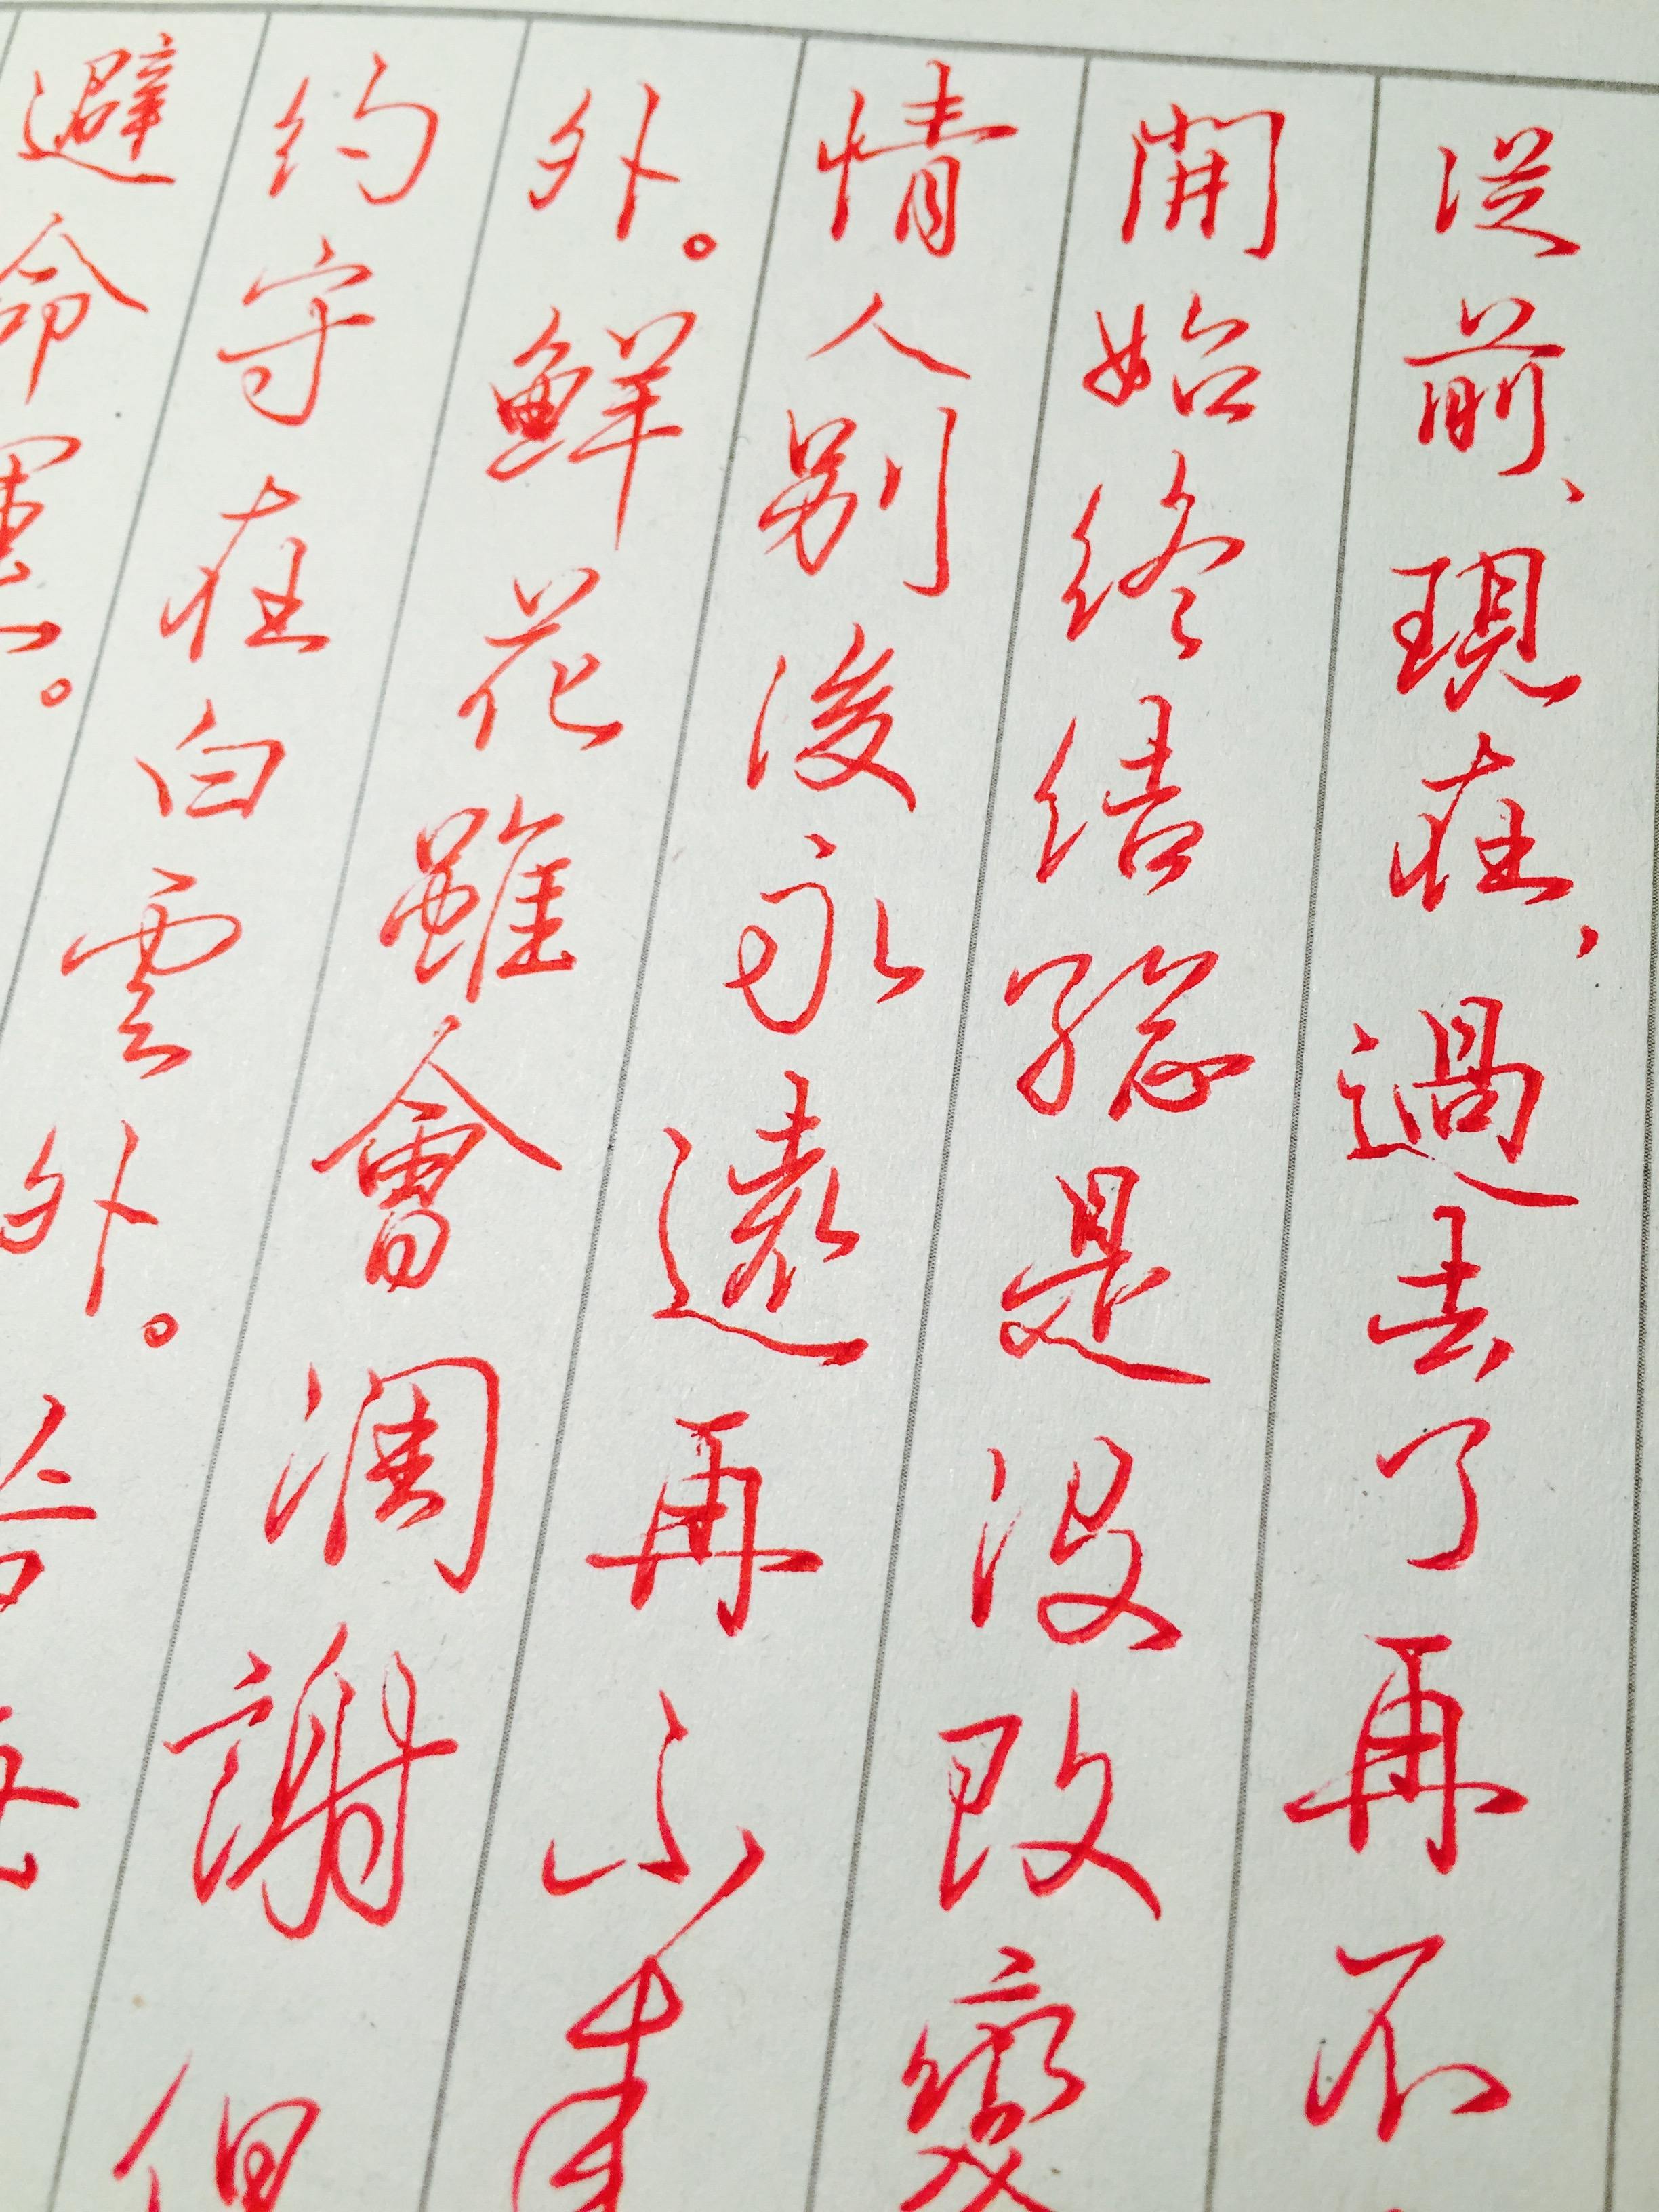 從前、現在、過去了再不
開始終结總是没改變
情人别後永遠再不來
外。鮮花雖會凋謝但
約守在白雲外。
避命運。